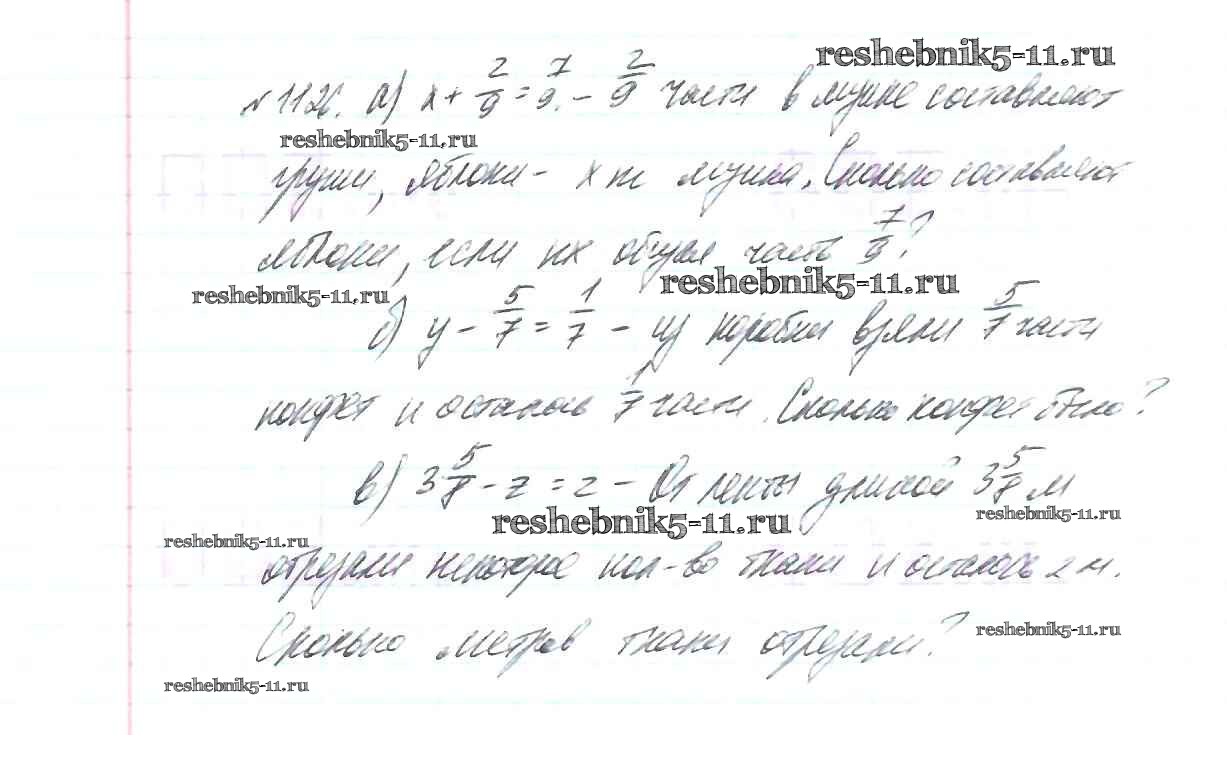 reshebnik5-11.ru
№1126. а) x + 2/9 = 7/9. - 2/9 части в музике составляют
reshebnik5-11.ru
груши, яблоки - x Сколько составляют
яблоки, если их общая часть 7/9?
reshebnik5-11.ru reshebnik5-11.ru
б) y - 5/7 = 1/7 - из коробки взяли 5/7 части
конфет и осталась 1/7 части. Сколько конфет было?
в) 3 5/8 - z = 2 - От ленты длиной 3 5/8 м
reshebnik5-11.ru reshebnik5-11.ru
reshebnik5-11.ru
отрезали некоторое кол-во ткани и осталось 2 м.
Сколько метров ткани отрезали?
reshebnik5-11.ru
reshebnik5-11.ru